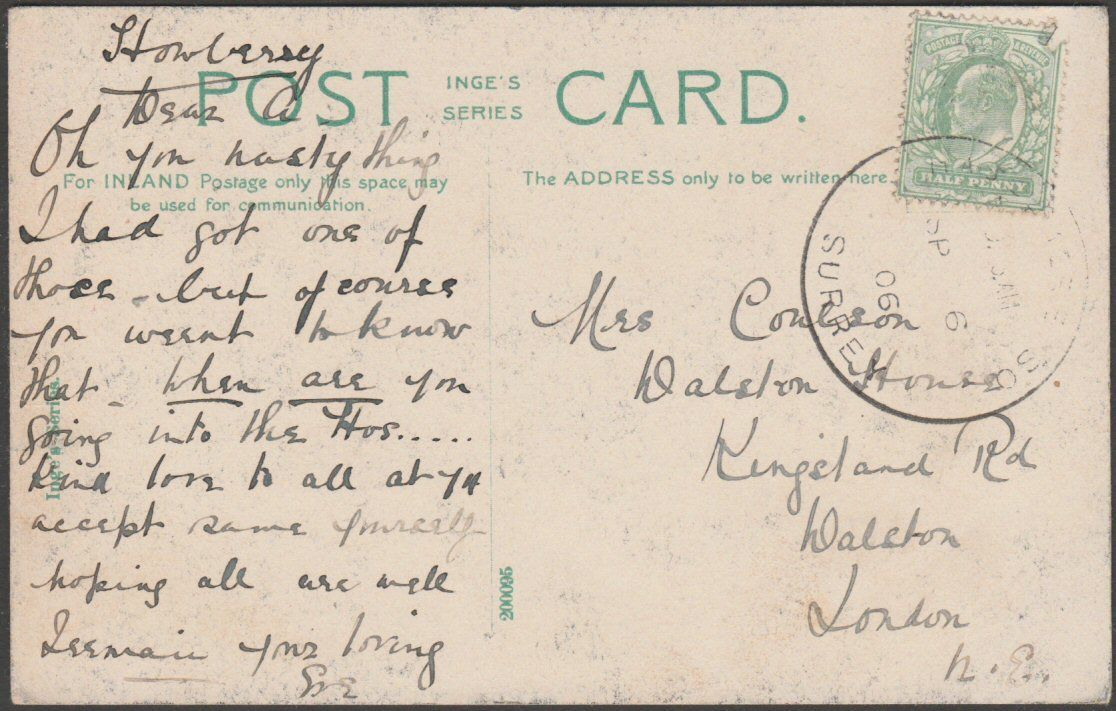 Howberry
Dear A
Oh you nasty thing
I had got one of
those - but of course
you weernt to know
that - when are you
going into the Hos......
Kind love to all at 74
accept same yourself
hoping all are well
I remain your loving
POST CARD.
INGE'S
SERIES
For INLAND Postage only this space may
be used for communication.
The ADDRESS only to be written here
Inge's Series
200095
POSTAGE & REVENUE
HALF PENNY
SP 6
06
SURREY
Mrs Coulson
Dalston House
Kingsland Rd
Dalston
London
N.E.